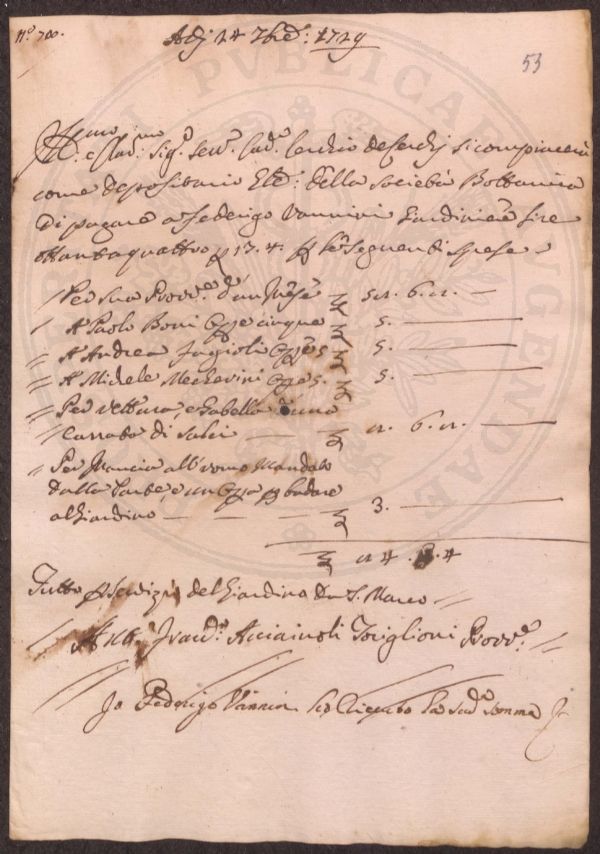 N.o 700.
Adj 24 7bre: 1729
53
Ill.mo e Clar.mo Sig.r Sen.r Cav.r si compiacerà
come depositario Ele: della Società Bottanica
di pagare a Federigo Vannini Giardiniere lire
ottantaquattro 13.4. p le seguenti spese
Per sua Provv.e d'un Mese 6.
A Paolo Boni Opre cinque 5.
A Andrea Fagioli Opre 5 5.
A Michele Mecherini Opre 5. 5.
Per vettura, e Gabella d'una
Carrata di 6.
Per Mancia all'uomo Mandato
dalla e un Opra p badare
al Giardino 3.
4
Tutto p servizio del Giardino di S. Marco
Franc.o Acciaiuoli Toriglioni Provv.e
Io Federigo Vannini ho ricevuto la sud.a somma